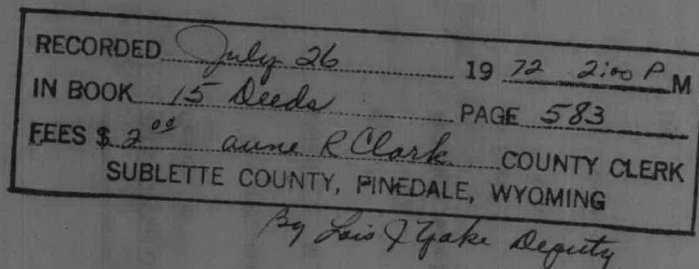 RECORDED July 26 1972 2:00 P M
IN BOOK 15 Deeds PAGE 583
FEES $ 2.00 Anne R Clark COUNTY CLERK
SUBLETTE COUNTY, PINEDALE, WYOMING
By Lois J Deputy